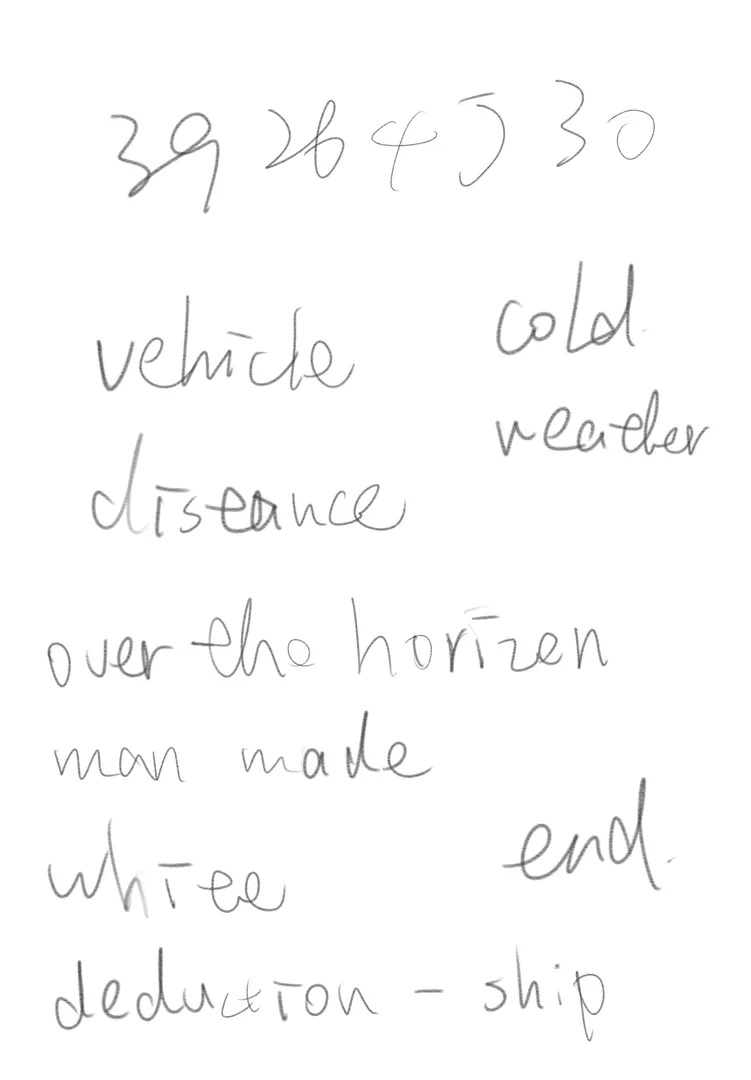 39264530
vehicle
cold
weather
distance
over the horizen
man made
white
end.
deduction - ship